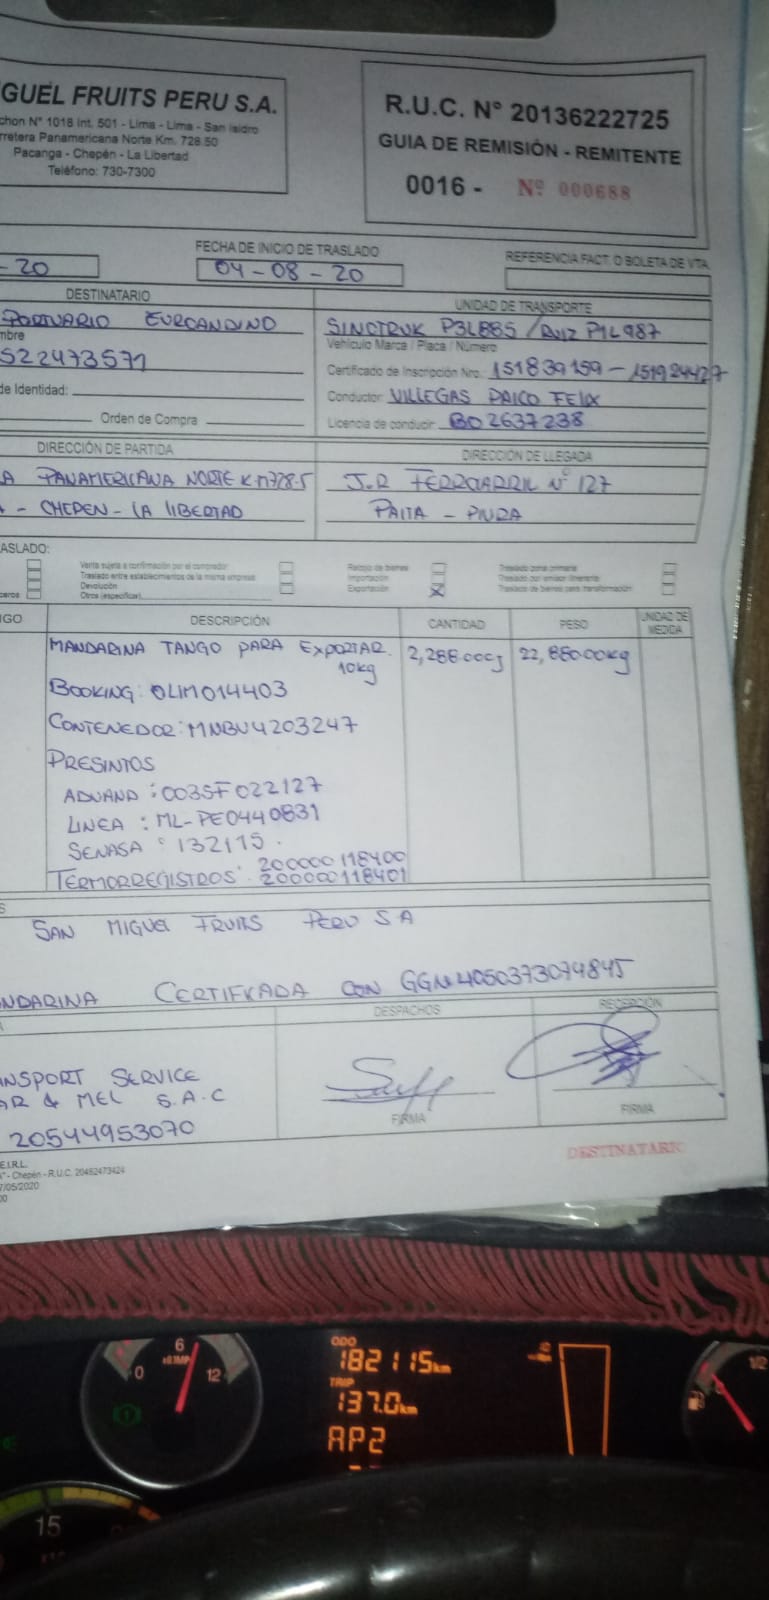 GUEL FRUITS PERU S.A.
chon N° 1018 Int. 501 - Lima - Lima - San Isidro
rretera Panamericana Norte Km. 728.50
Pacanga - Chepén - La Libertad
Teléfono: 730-7300
R.U.C. N° 20136222725
GUIA DE REMISIÓN - REMITENTE
0016 - Nº 000688
- 20
FECHA DE INICIO DE TRASLADO
04-08-20
REFERENCIA FACT. O BOLETA DE VTA.
DESTINATARIO
PORTUARIO EUROANDINO
mbre
522473571
de Identidad:
Orden de Compra
UNIDAD DE TRANSPORTE
SINOTRUK P3L885 / RUIZ P1L987
Vehículo Marca / Placa / Número
Certificado de Inscripción Nro. 151839159 - 151924427
Conductor: VILLEGAS PAICO FELIX
Licencia de conducir: B02637238
DIRECCIÓN DE PARTIDA
A PANAMERICANA NORTE K.M728.5
- CHEPEN - LA LIBERTAD
DIRECCIÓN DE LLEGADA
J.R FERROARRIL N° 127
PAITA - PIURA
ASLADO:
Venta sujeta a confirmación por el comprador
Traslado entre establecimientos de la misma empresa
Devolución
Otros (especificar)
ceros
Recojo de bienes
Importación
Exportación X
Traslado zona primaria
Traslado por emisor itinerante
Traslado de bienes para transformación
IGO
DESCRIPCIÓN
CANTIDAD
PESO
UNIDAD DE MEDIDA
MANDARINA TANGO PARA EXPORTAR. 2,288.00cj 22,880.00kg
10kg
BOOKING: OLIM014403
CONTENEDOR: MNBU4203247
PRESINTOS
ADUANA : 003SF022127
LINEA : ML-PE0440831
SENASA : 132115.
200000118400
TERMORREGISTROS: 200000118401
S
SAN MIGUEL FRUITS PERU S A
NDARINA CERTIFICADA CON GGN:4050373079845
DESPACHOS
RECEPCIÓN
NSPORT SERVICE
AR & MEL S.A.C
20544953070
FIRMA
FIRMA
DESTINATARIO
E.I.R.L.
- Chepén - R.U.C. 20482473424
/05/2020
00
0 6 12
ODO
182115km
TRIP
137.0km
AP2
1/2
15